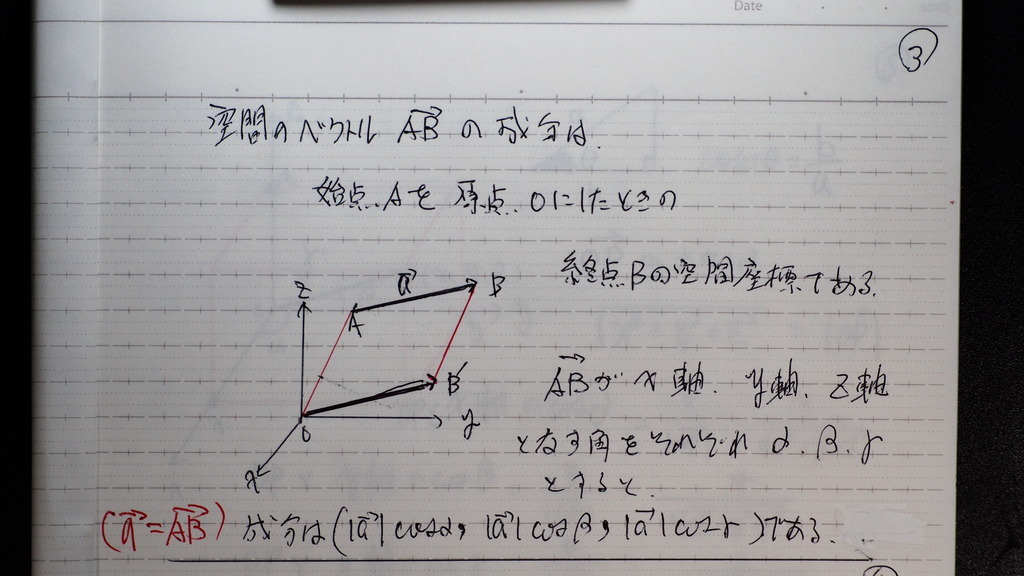 Date
③
空間のベクトル AB→ の成分は
始点Aを原点Oにしたときの
終点Bの空間座標である.
z
a→
B
A
B'
O
y
x
AB→がx軸、y軸、z軸
となす角をそれぞれα、β、γ
とすると、
(a→=AB→) 成分は(|a→|cosα, |a→|cosβ, |a→|cosγ)である.